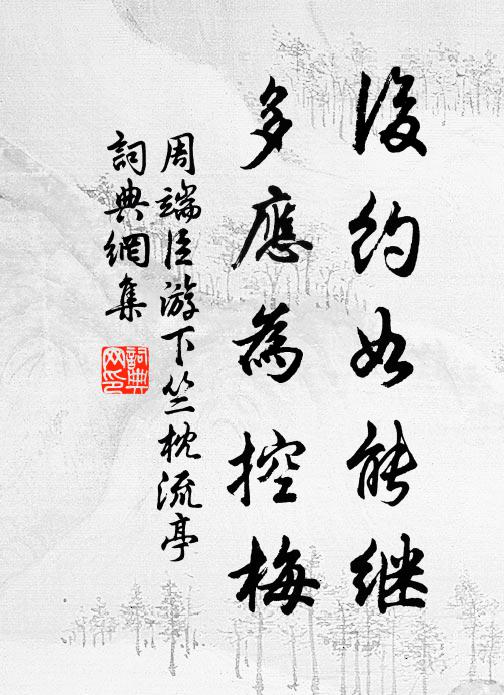 後约如能继
多應為控梅
周端臣游下竺枕流亭
詞典網集
詞典网印